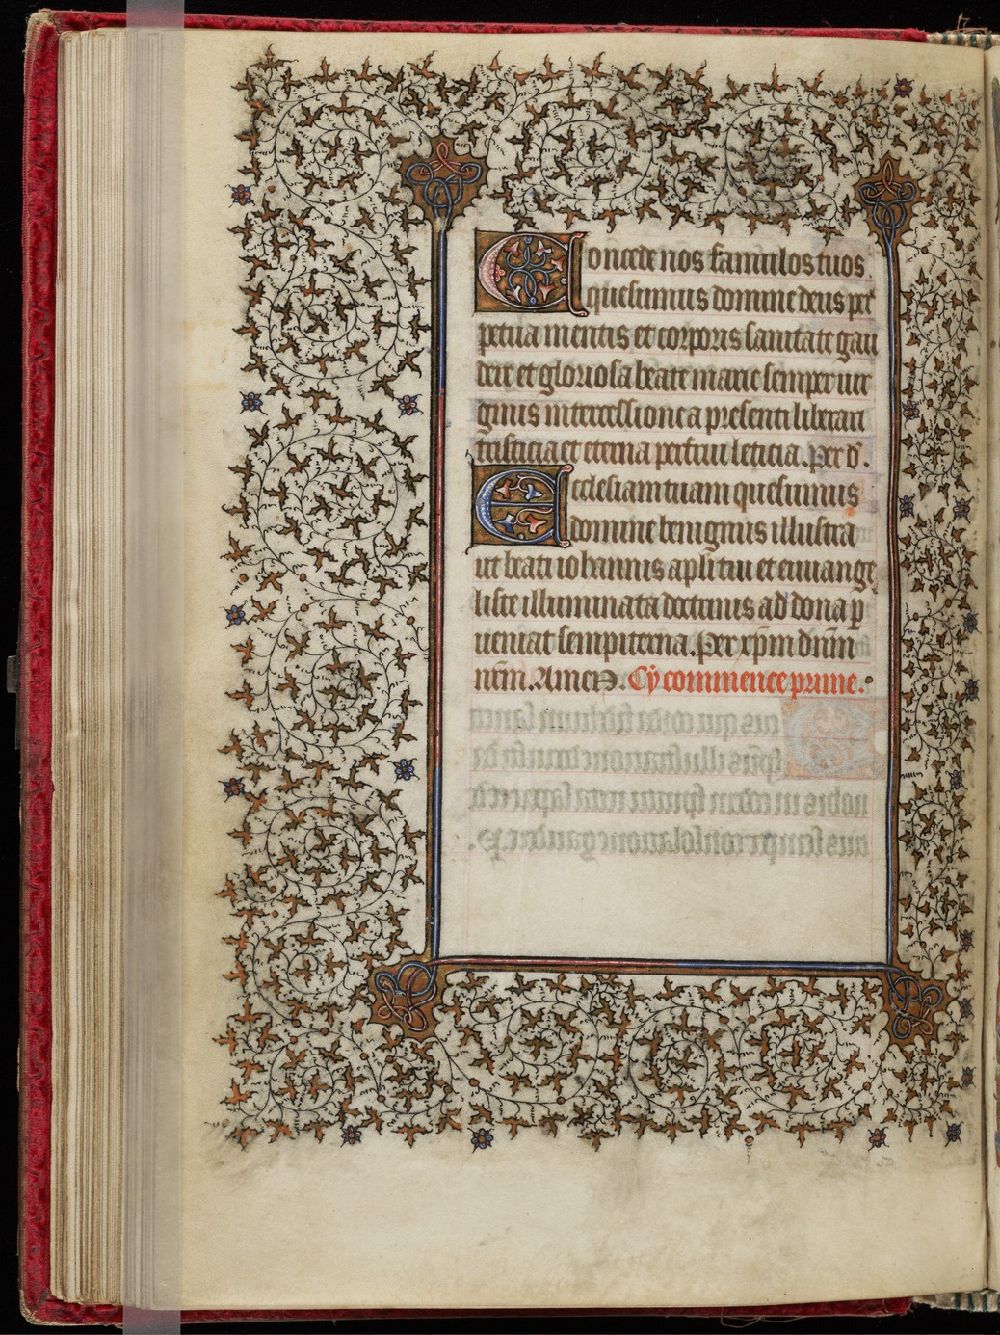 Concede nos famulos tuos
quesumus domine deus per
petua mentis et corporis sanitate gau
dere et gloriosa beate marie semper uir
ginis intercessione a presenti liberari
tristicia et eterna perfrui leticia. Per d̄.
Ecclesiam tuam quesumus
domine benignus illustra
ut beati iohannis apl̄i tui et euuange
liste illuminata doctrinis ad dona ꝑ
ueniat sempiterna. Per xp̄m dn̄m
nr̄m. Amen. Cy commence prime.